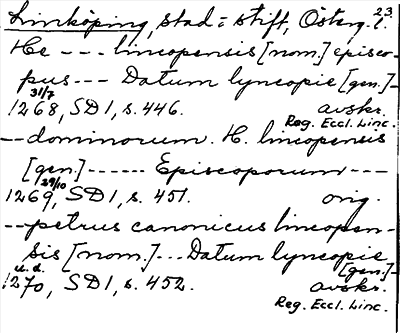 23.
Linköping, stad = stift, Österg. l.
He --- lincopensis [nom.] episco-
pus --- Datum lyncopie [gen.] -
31/7
1268, SD 1, s. 446. avskr.
Reg. Eccl. Linc.
-- dominorum H. lincopensis
[gen] ------ Episcoporum ---
29/10
1269, SD 1, s. 451. orig.
-- petrus canonicus lincopen-
sis [nom.] --- Datum lyncopie
u. d. [gen.] -
1270, SD 1, s. 452. avskr.
Reg. Eccl. Linc.